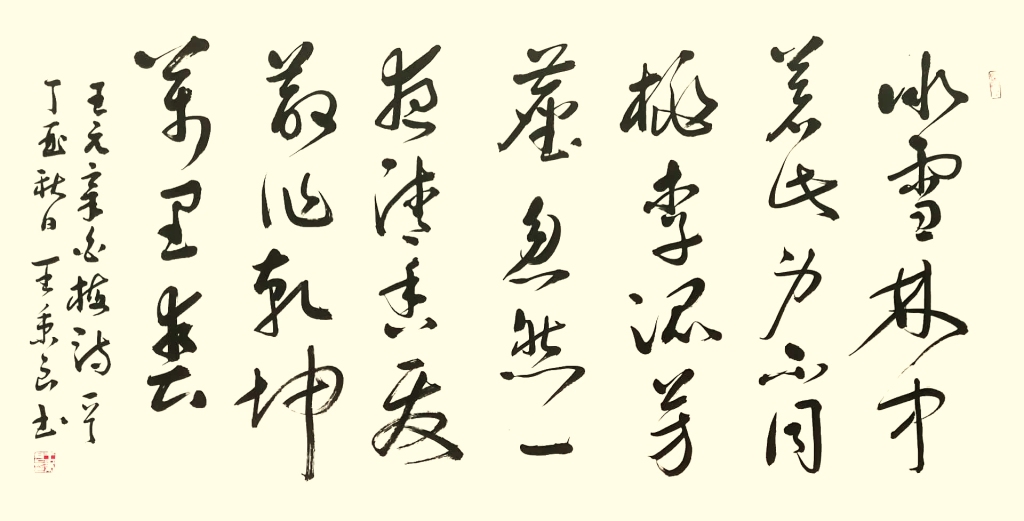 冰雪林中
著此身不同
桃李混芳
塵忽然一
夜清香发
散作乾坤
萬里春
王元章白梅詩一首
丁酉秋日王秉良书